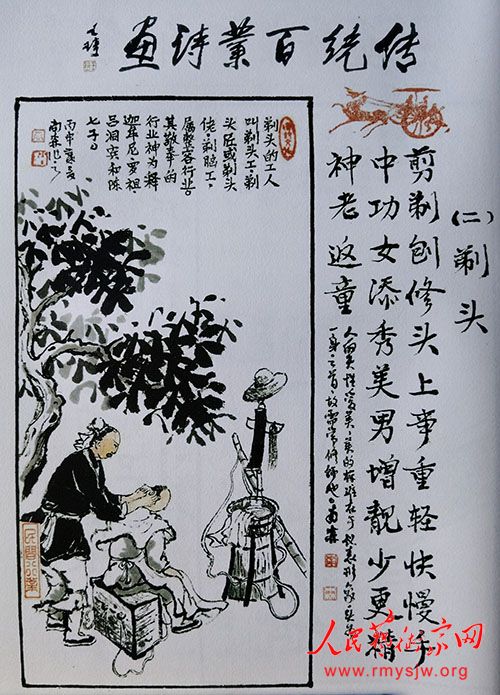 传统百業诗画
(二)剃头
剪剃刨修头上事重轻快慢手
中功女添秀美男增靓少更精
神老返童
剃头的工人
叫剃头工、剃
头匠或剃头
佬、剃脑工。
属整容行业。
其敬奉的
行业神为释
迦牟尼、罗祖、
吕洞宾和陈
七子。
丙申夏
民间行業
人民艺术家网
www.rmysjw.org